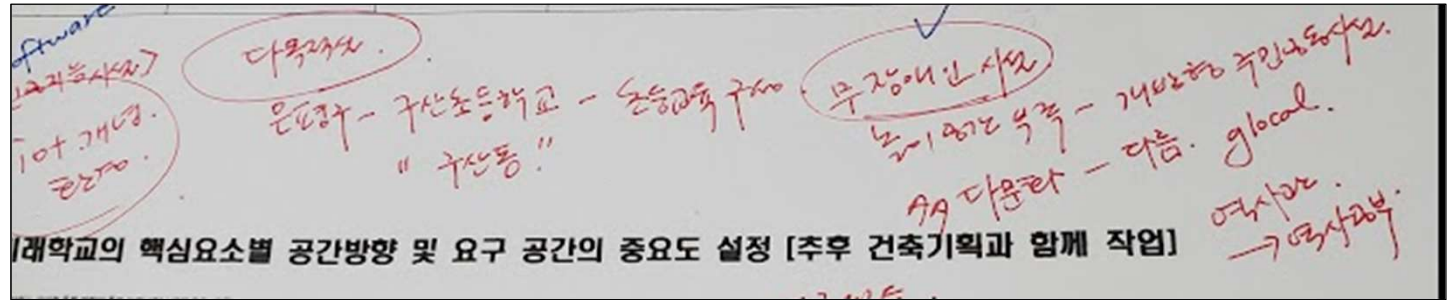 oftware
다목적실.
iot 개념.
은평구 - 구산초등학교 - 초등교육 구성. 무장애인시설
"구산동."
놀이공간 부족 - 개방형 주민공동시설.
다문화 - 다름. glocal.
역사관.
→ 역사공부.
미래학교의 핵심요소별 공간방향 및 요구 공간의 중요도 설정 [추후 건축기획과 함께 작업]